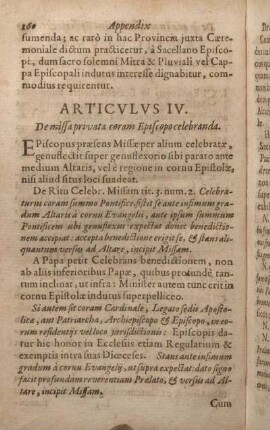 160 Appendix
sumenda; ac rarò in hac Provincia juxta Cære-
moniale dictum practicetur, à Sacellano Episco-
pi, dum sacro solemni Mitra & Pluviali vel Cap-
pa Episcopali indutus interesse dignabitur, com-
modius requirentur.
ARTICVLVS IV.
De missa privata coram Episcopo celebranda.
EPiscopus præsens Missæ per alium celebratæ,
genuflectit super genuflexorio sibi parato ante
medium Altaris, vel è regione in cornu Epistolæ,
nisi aliud situs loci suadeat.
De Ritu Celebr. Missam tit. 3. num. 2. Celebra-
turus coram summo Pontifice, sistit se ante infimum gra-
dum Altaris à cornu Evangelii, ante ipsum summum
Pontificem ubi genuflexus expectat donec benedictio-
nem accipiat: accepta benedictione erigit se, & stans ali-
quantum versus ad Altare, incipit Missam.
A Papa petit Celebrans benedictionem, non
ab aliis inferioribus Papæ, quibus profundè tan-
tum inclinat, ut infra: Minister autem tunc erit in
cornu Epistolæ indutus superpelliceo.
Si autem sit coram Cardinale, Legato sedis Aposto-
licæ, aut Patriarcha, Archiepiscopo & Episcopo, in eo-
rum residentijs vel loco jurisdictionis: Episcopis da-
tur hic honor in Ecclesiis etiam Regularium &
exemptis intra suas Diœceses. Stans ante infimum
gradum à cornu Evang., ut supra expectat: dato signo
facit profundam reverentiam Prælato, & versus ad Al-
tare, incipit Missam.
Cum